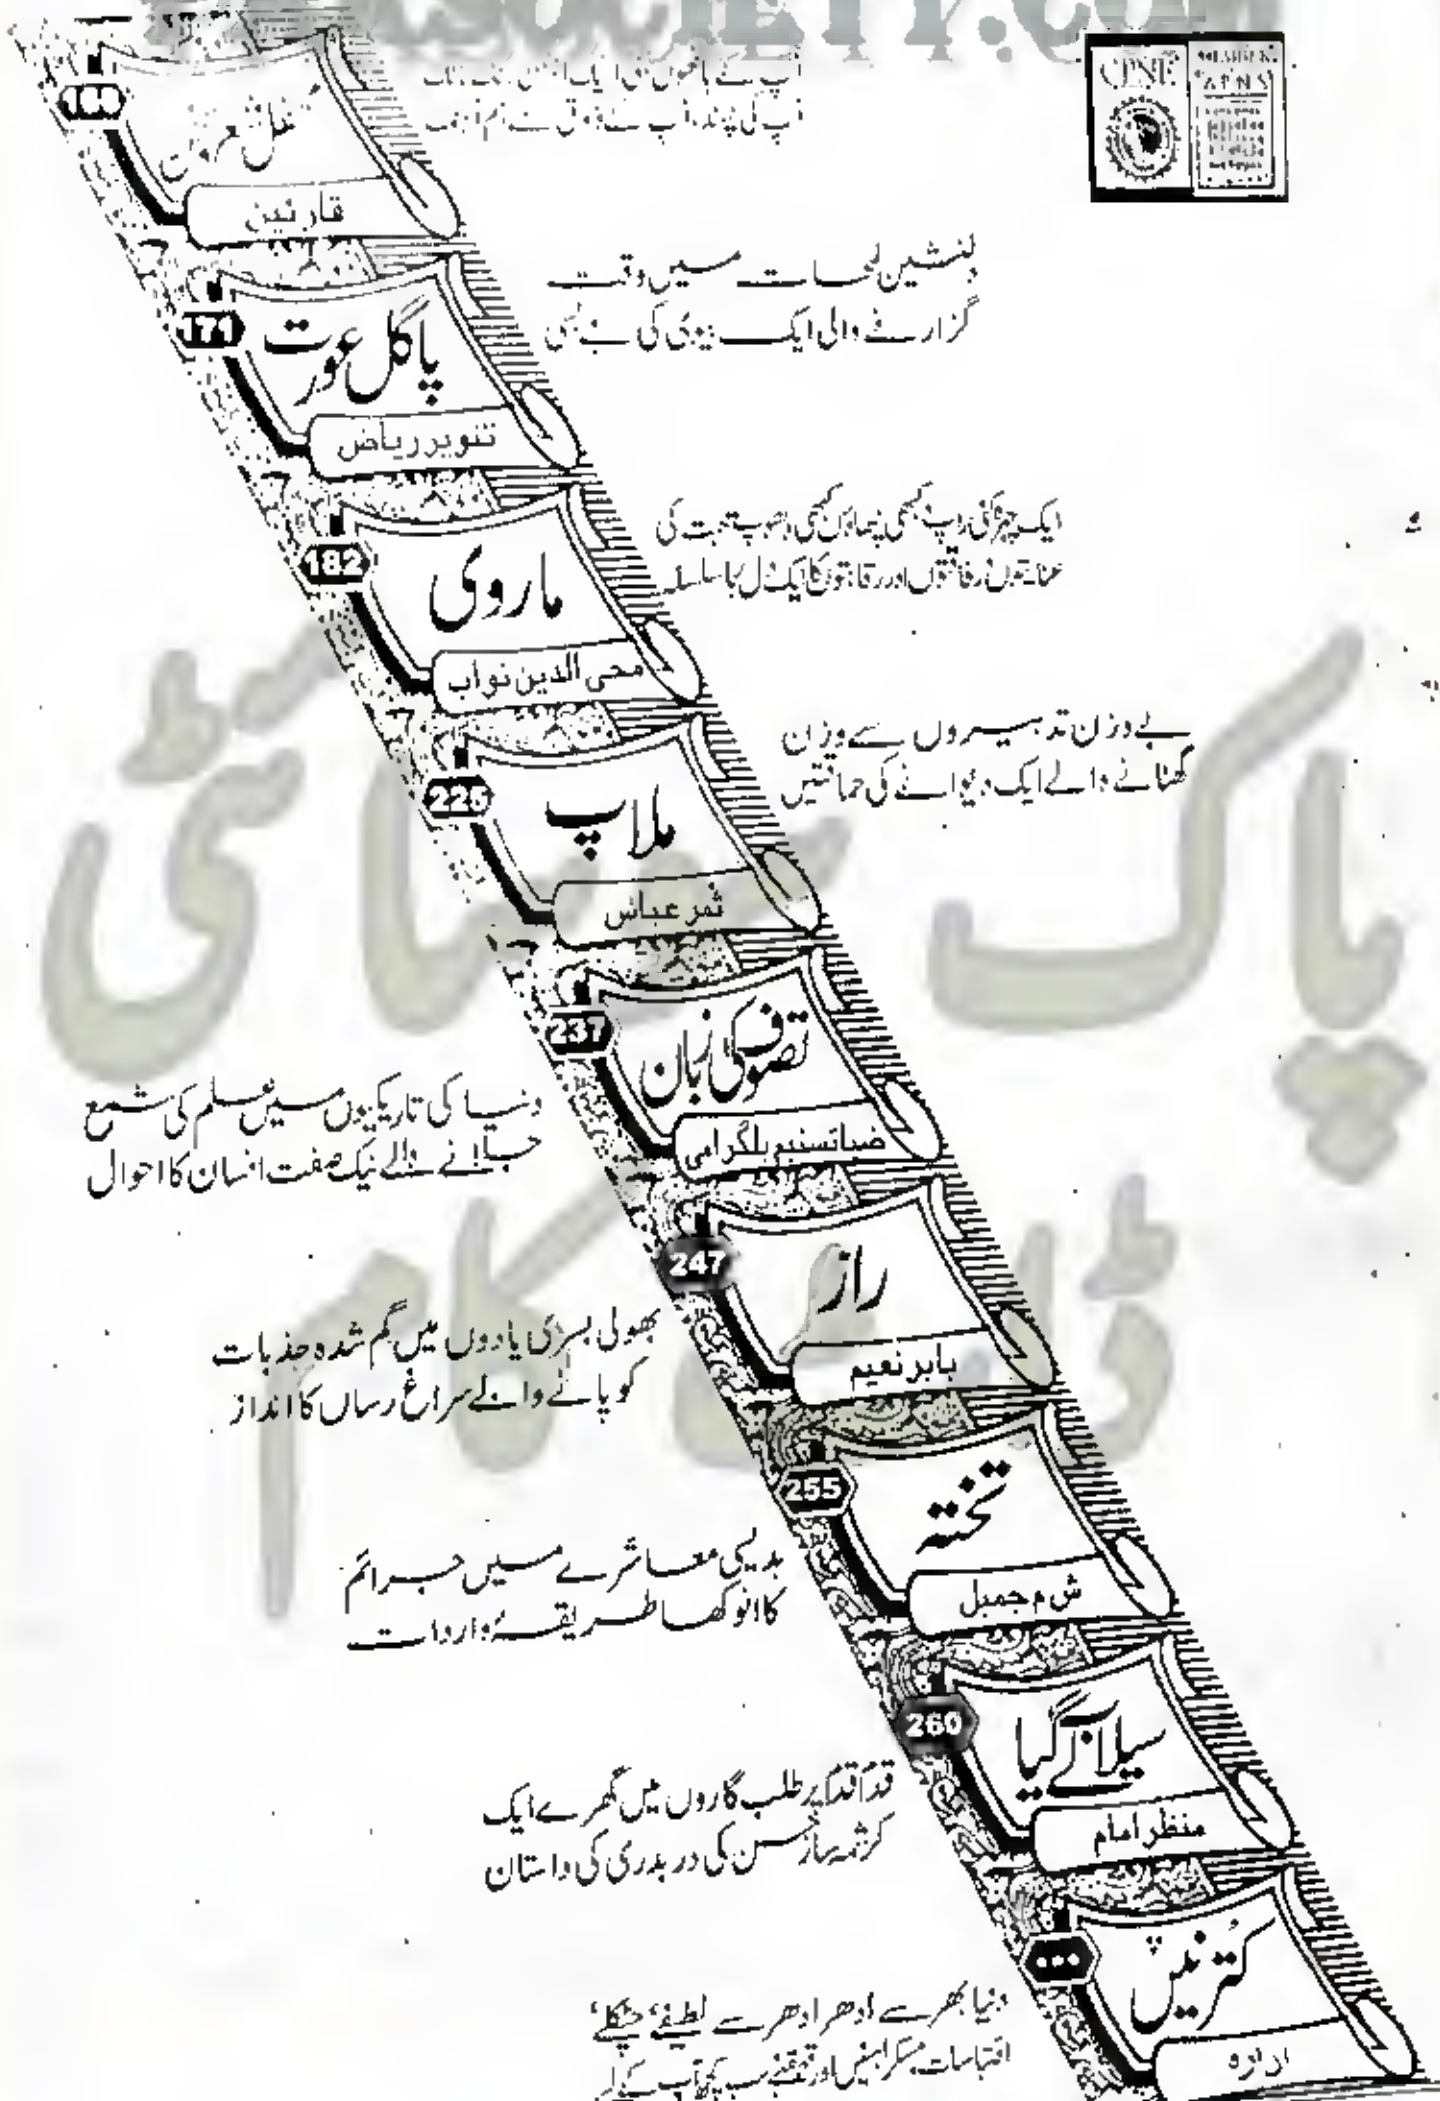 SOCIETY.COM
CPNE
MEMBER
APNS
169
محفل شعر و سخن
قارئین
171
پاگل عورت
تنویر ریاض
دلنشین لمحات میں وقت
گزارنے والی ایک بیوی کی بے بسی
182
ماروی
محی الدین نواب
225
ملاپ
ثمر عباس
بے وزن تدبیروں سے وزن
گھٹانے والے ایک دیوانے کی حماقتیں
237
تصوف کی زبان
ضیاتسنیم بلگرامی
دنیا کی تاریکیوں میں علم کی شمع
جلانے والے نیک صفت انسان کا احوال
247
راز
بابر نعیم
بھولی بسری یادوں میں گم شدہ جذبات
کو پانے والے سراغ رساں کا انداز
255
تختہ
ش م جمیل
بدیسی معاشرے میں جرائم
کا انوکھا طریقۂ واردات
260
سیلاب آگیا
منظر امام
قدم قدم پر طلب گاروں میں گھرے ایک
کرشمہ ساز حسن کی دربدری کی داستان
...
کترنیں
ادارہ
دنیا بھر سے ادھر ادھر سے لطیفے، چٹکلے،
اقتباسات مسکراہٹیں اور قہقہے سب کچھ آپ کے لیے
پاک سوسائٹی
ڈاٹ کام